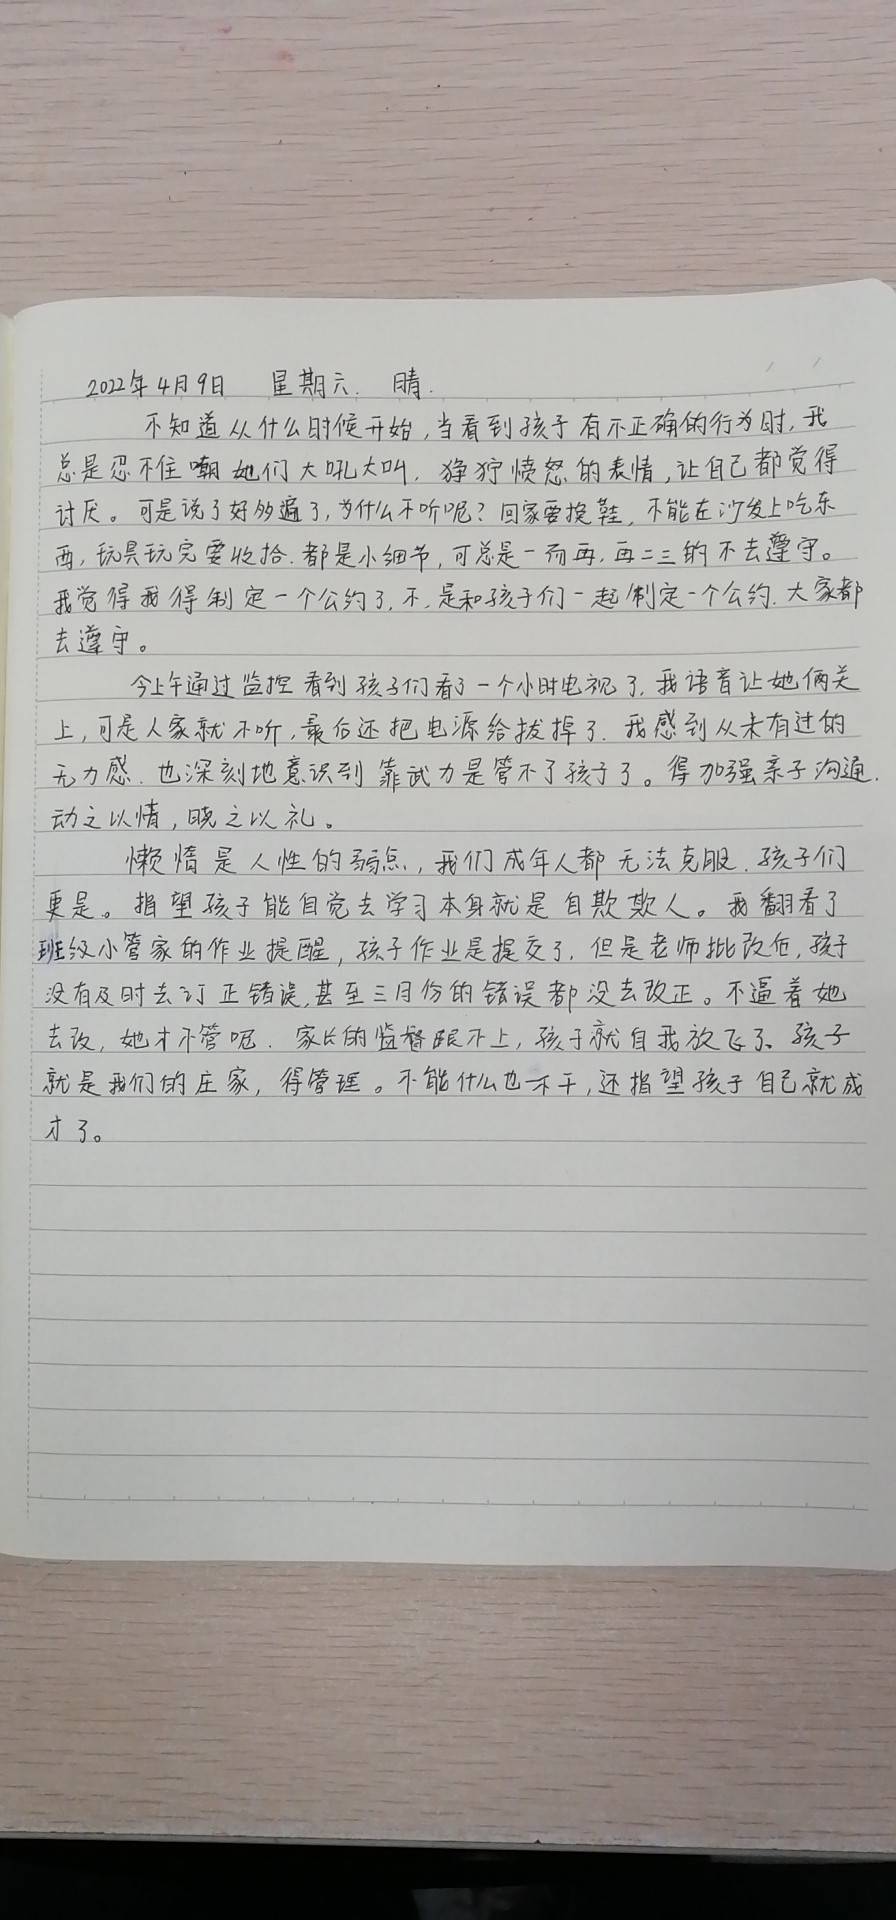 2022年4月9日 星期六. 晴.
不知道从什么时候开始,当看到孩子有不正确的行为时,我
总是忍不住嘲她们大吼大叫.狰狞愤怒的表情,让自己都觉得
讨厌。可是说了好多遍了,为什么不听呢?回家要换鞋,不能在沙发上吃东
西,玩具玩完要收拾.都是小细节,可总是一而再,再二三的不去遵守。
我觉得我得制定一个公约了,不,是和孩子们一起制定一个公约.大家都
去遵守。
今上午通过监控看到孩子们看了一个小时电视了,我语音让她俩关
上,可是人家就不听,最后还把电源给拔掉了.我感到从未有过的
无力感.也深刻地意识到靠武力是管不了孩子了。得加强亲子沟通.
动之以情,晓之以礼。
懒惰是人性的弱点,我们成年人都无法克服.孩子们
更是。指望孩子能自觉去学习本身就是自欺欺人。我翻看了
班级小管家的作业提醒,孩子作业是提交了,但是老师批改后,孩子
没有及时去订正错误,甚至三月份的错误都没去改正。不逼着她
去改,她才不管呢.家长的监督跟不上,孩子就自我放飞了。孩子
就是我们的庄家,得管理。不能什么也不干,还指望孩子自己就成
才了。